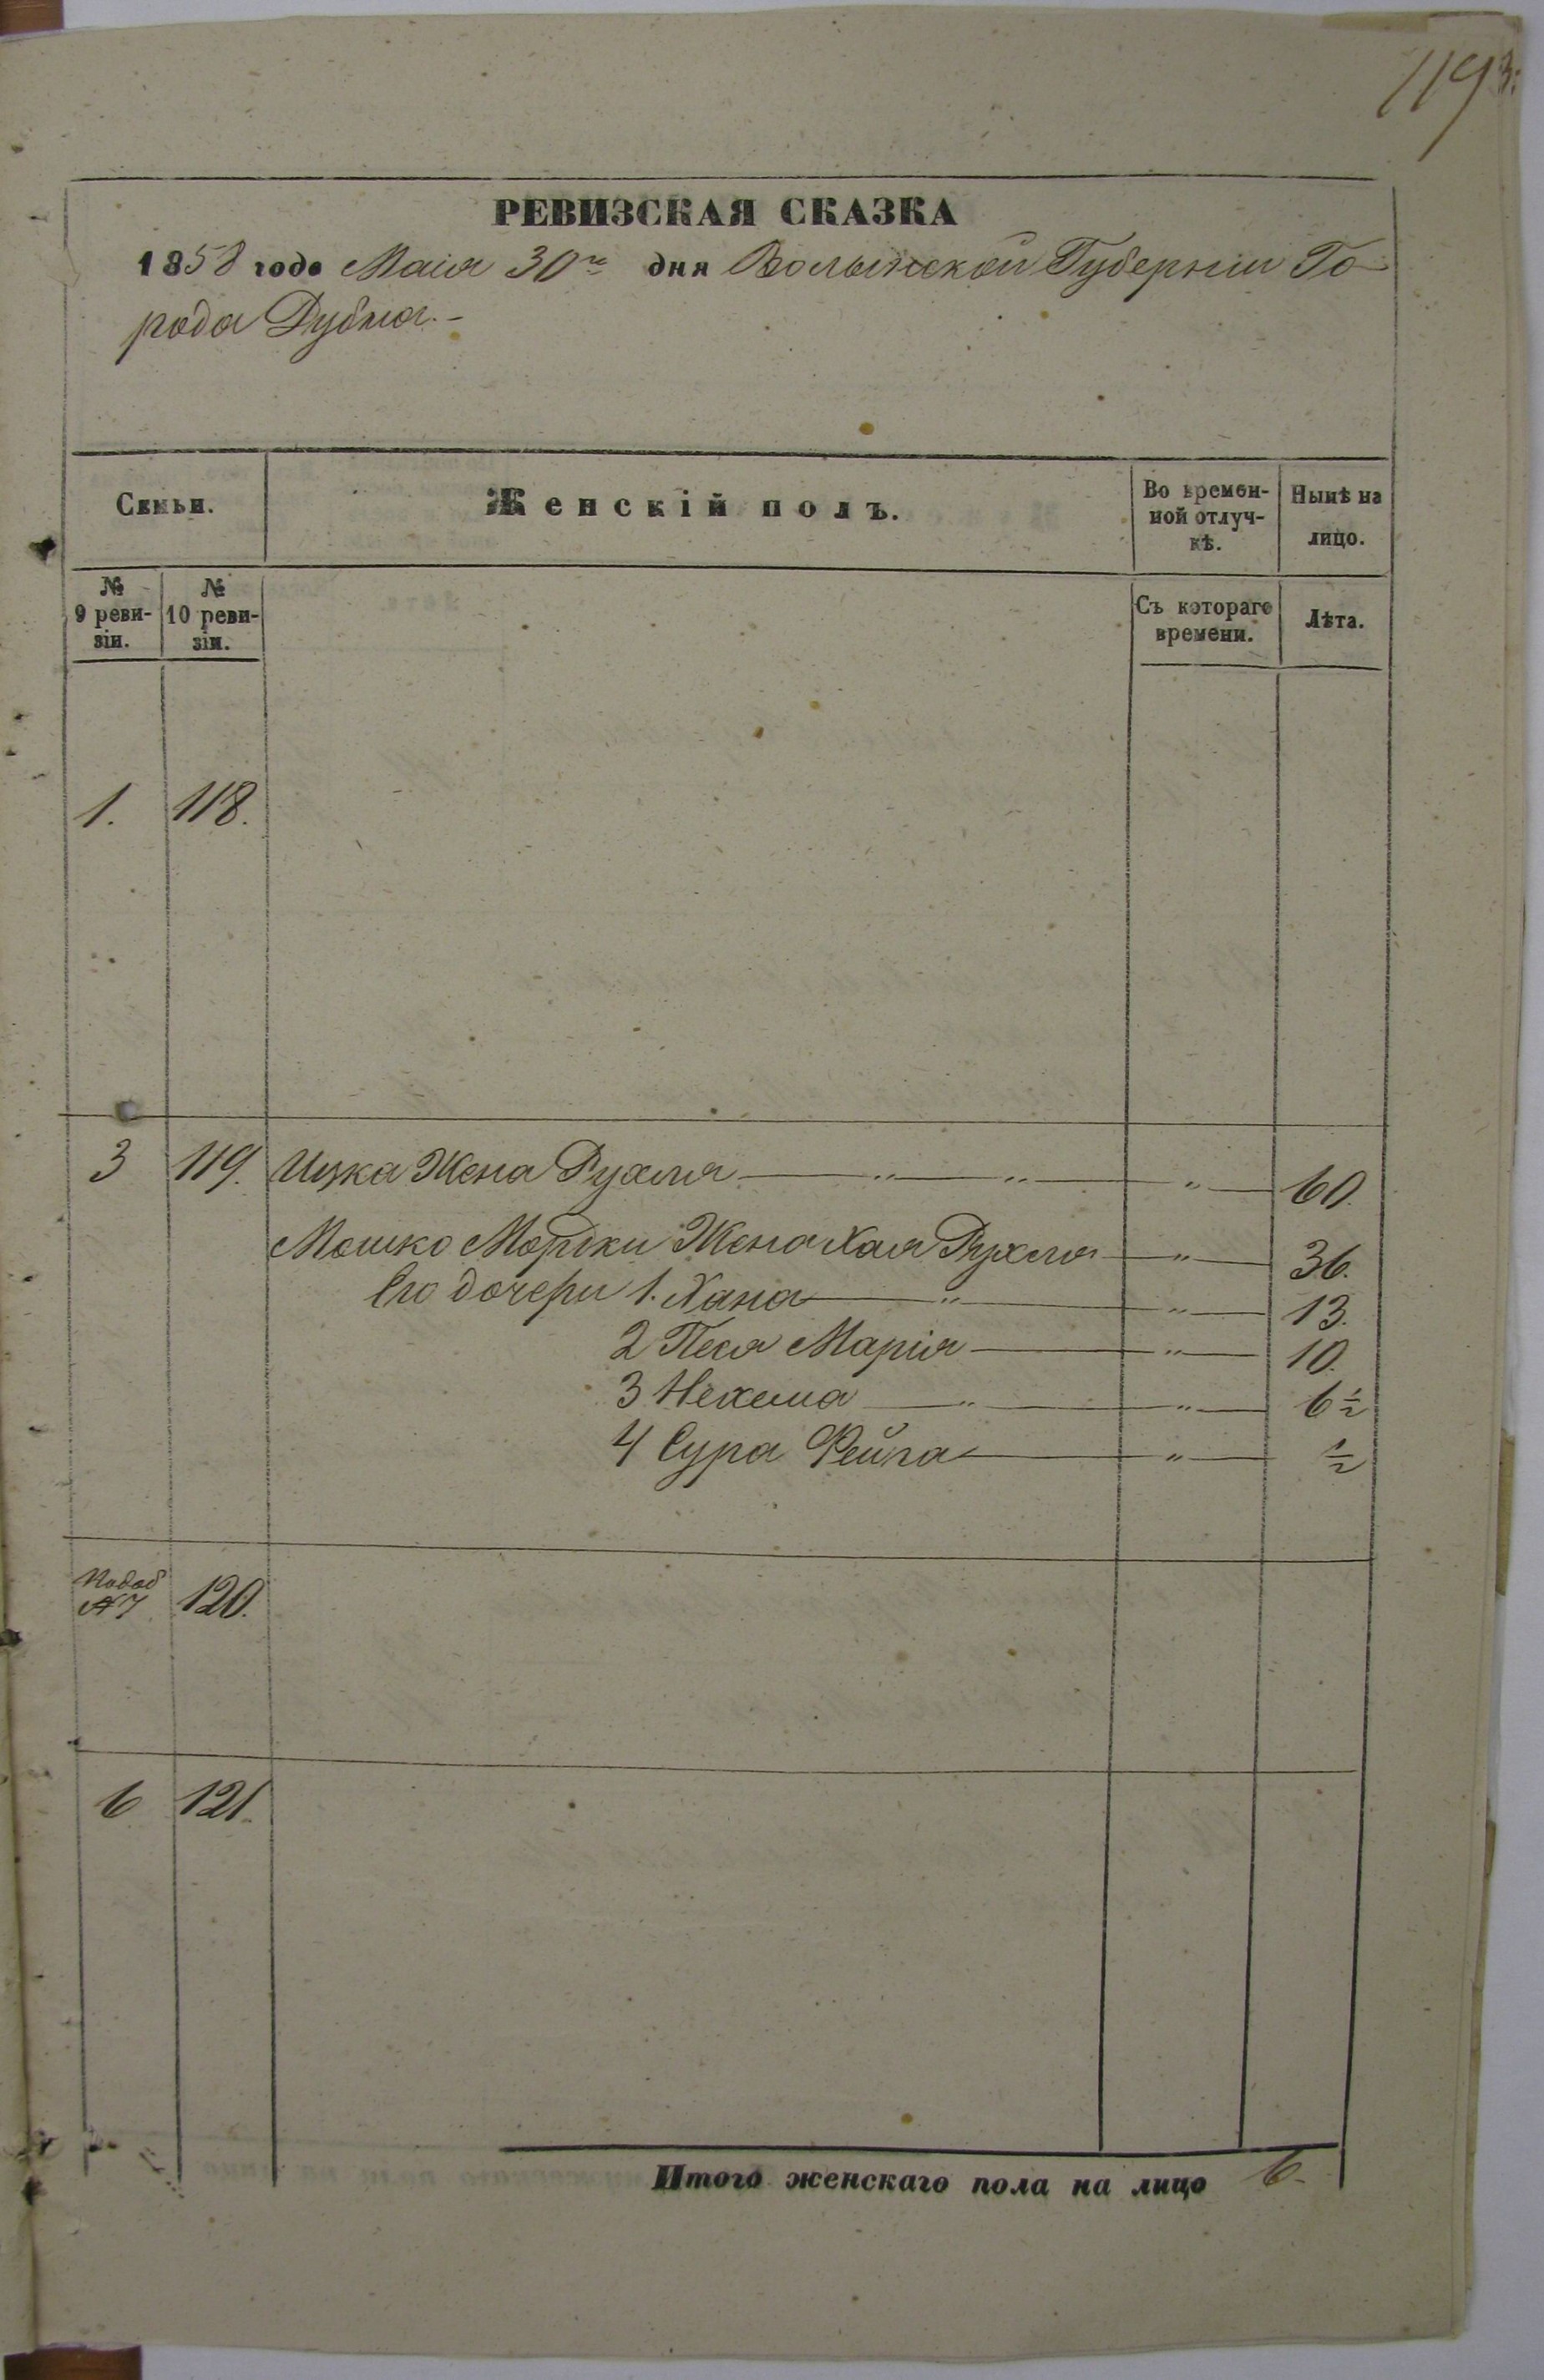 119
РЕВИЗСКАЯ СКАЗКА
1858 года Маія 30го дня Волынской Губерніи Го-
рода Дубна.-
Семьи.
Женскій полъ.
Во времен-
ной отлуч-
кѣ.
Нынѣ на
лицо.
№
9 реви-
зіи.
№
10 реви-
зіи.
Съ котораго
времени.
Лѣта.
1. 118.
3 119. Ицка Жена Рухля — " — " — " — 60.
Мошко Мордки Жена Хая Рухля — " — 36.
Его дочери 1. Хана — " — " — 13.
2 Песя Марія — " — 10.
3 Нехема — " — " — 6 ½
4 Сура Фейга — " — ½
№7 120.
6 121.
Итого женскаго пола на лицо 6.